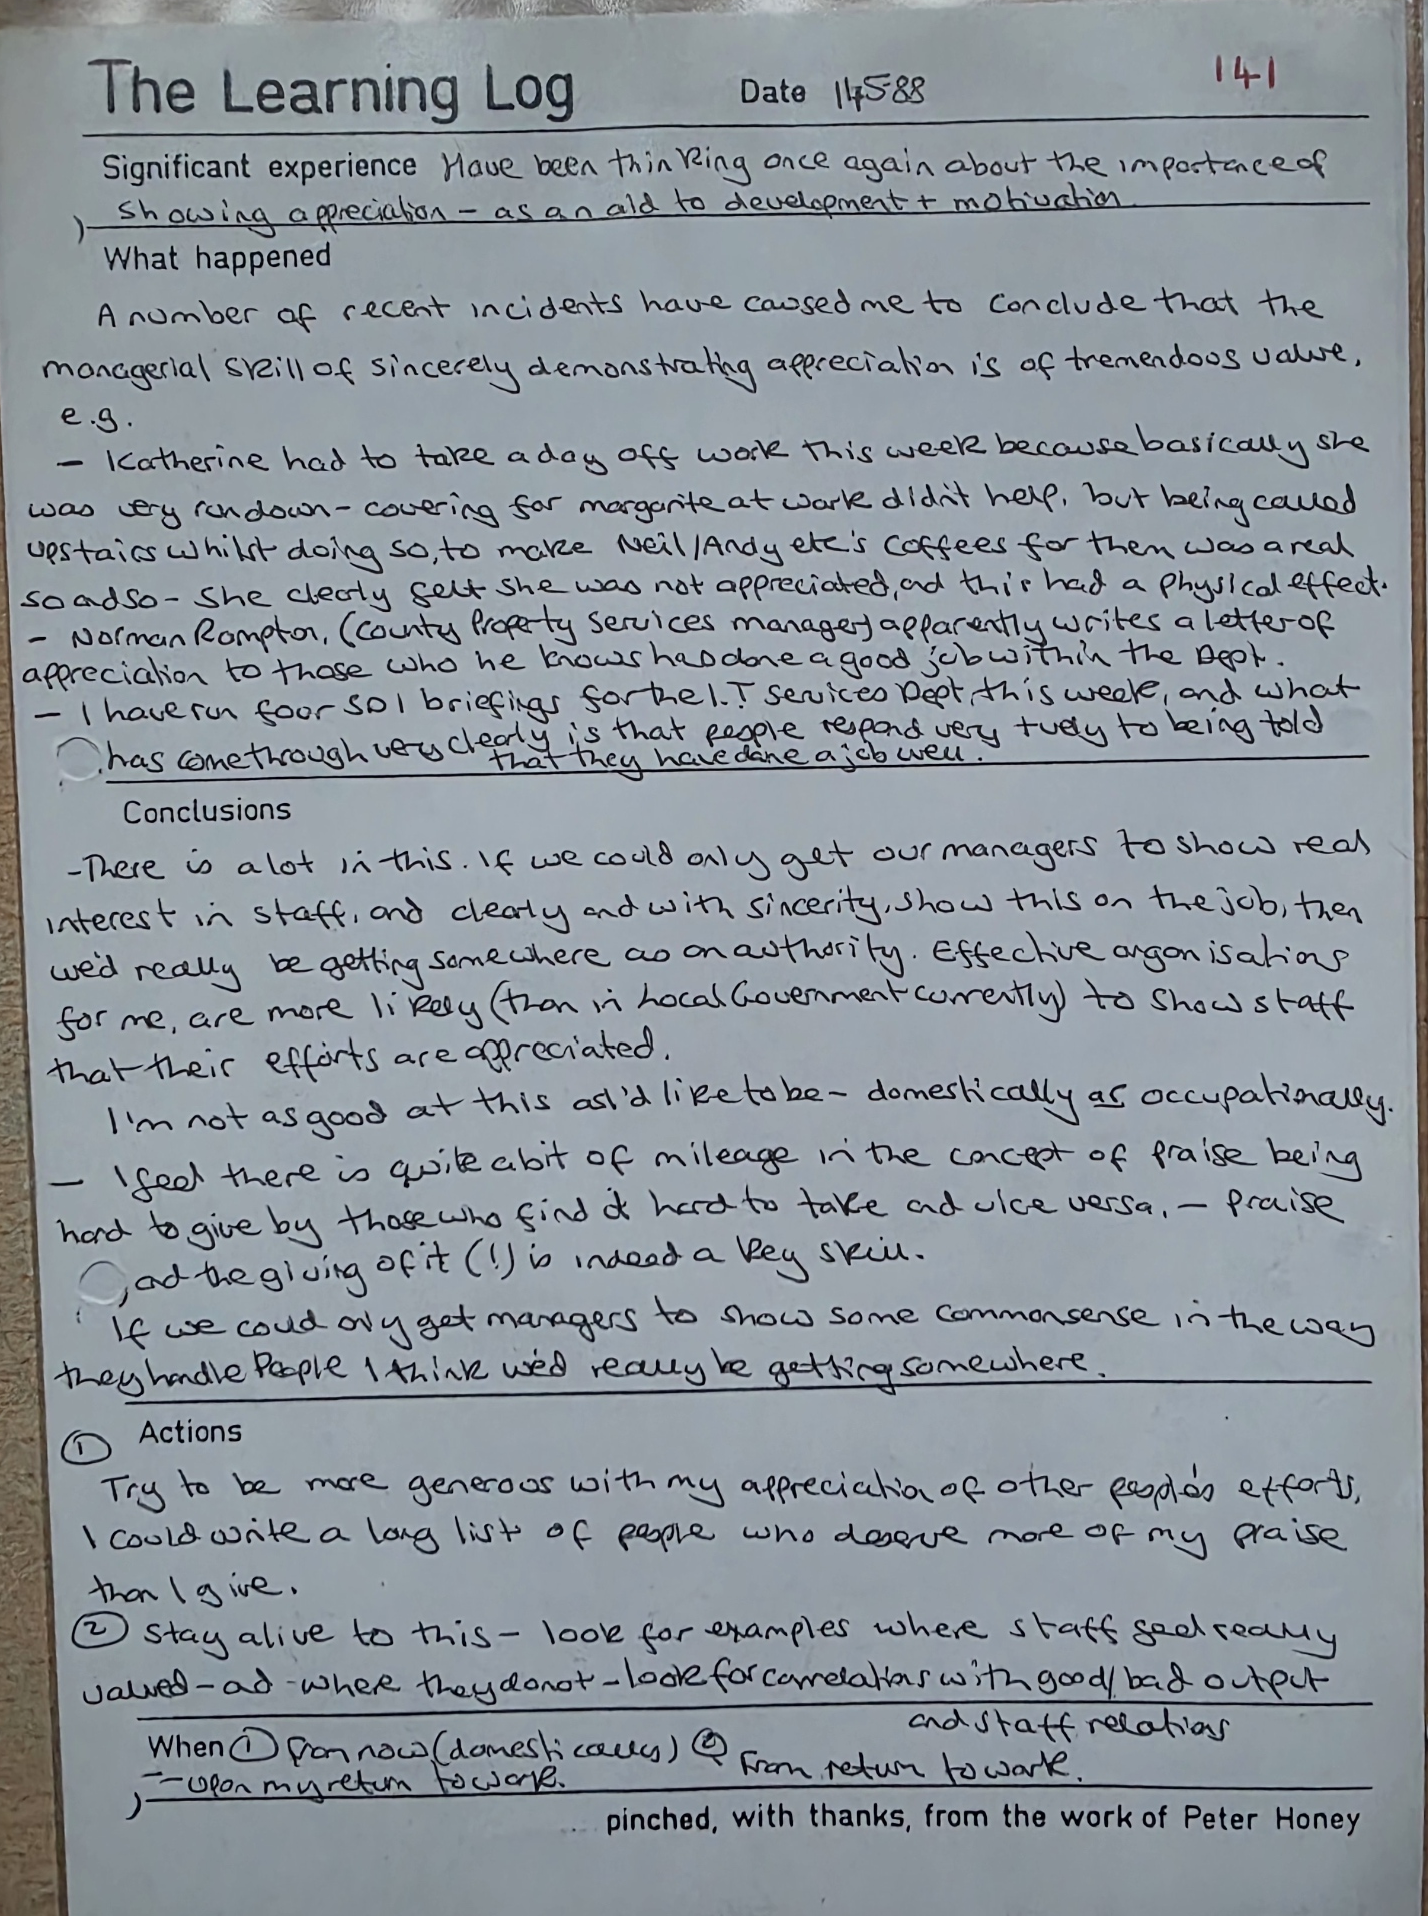 The Learning Log Date 14588 141
Significant experience Have been thinking once again about the importance of
showing appreciation - as an aid to development + motivation.
What happened
A number of recent incidents have caused me to conclude that the
managerial skill of sincerely demonstrating appreciation is of tremendous value,
e.g.
- Katherine had to take a day off work this week because basically she
was very rundown - covering for margarite at work didn't help, but being called
upstairs whilst doing so, to make Neil/Andy etc's coffees for them was a real
so and so - she clearly felt she was not appreciated, and this had a physical effect.
- Norman Rampton, (County Property Services manager) apparently writes a letter of
appreciation to those who he knows has done a good job within the Dept.
- I have run four SDI briefings for the I.T Services Dept, this week, and what
has come through very clearly is that people respond very +vely to being told
that they have done a job well.
Conclusions
- There is a lot in this. If we could only get our managers to show real
interest in staff, and clearly and with sincerity, show this on the job, then
we'd really be getting somewhere as an authority. Effective organisations
for me, are more likely (than in Local Government currently) to show staff
that their efforts are appreciated.
I'm not as good at this as I'd like to be - domestically as occupationally.
- I feel there is quite a bit of mileage in the concept of praise being
hard to give by those who find it hard to take and vice versa, - praise
, and the giving of it (!) is indeed a key skill.
If we could only get managers to show some commonsense in the way
they handle People I think we'd really be getting somewhere.
① Actions
Try to be more generous with my appreciation of other people's efforts,
I could write a long list of people who deserve more of my praise
than I give.
② Stay alive to this - look for examples where staff feel really
valued - and - where they do not - look for correlations with good/bad output
and staff relations
When ① from now (domestically) ② From return to work.
- upon my return to work.
pinched, with thanks, from the work of Peter Honey